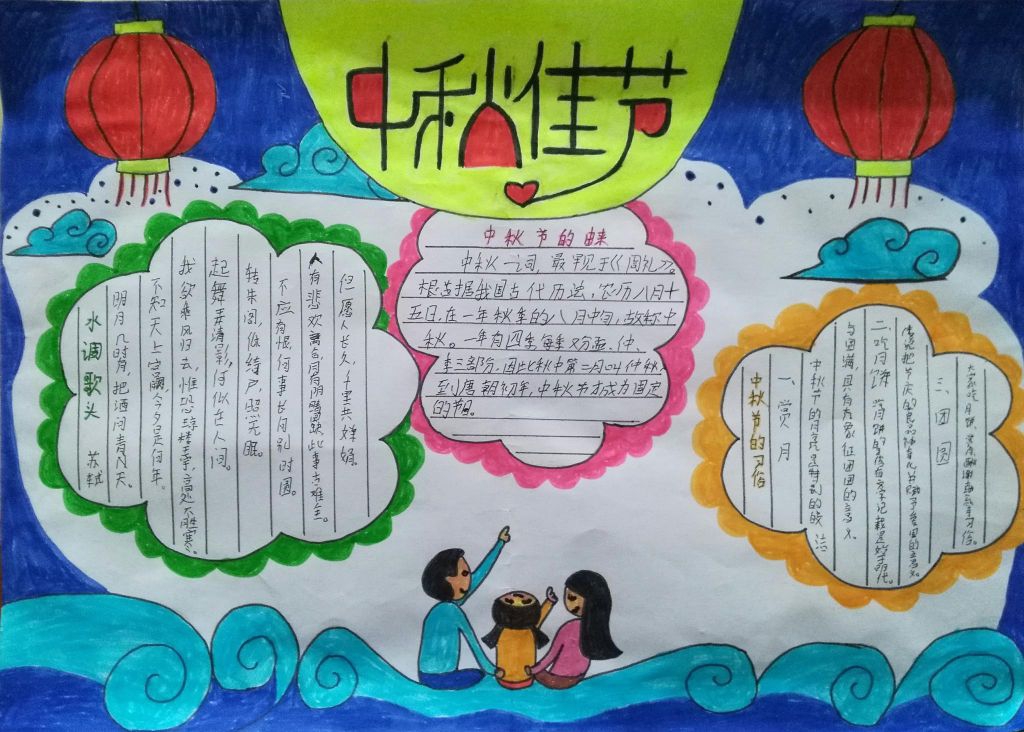 中秋佳节
水调歌头 苏轼
明月几时有,把酒问青天。
不知天上宫阙,今夕是何年。
我欲乘风归去,惟恐琼楼玉宇,高处不胜寒。
起舞弄清影,何似在人间。
转朱阁,低绮户,照无眠。
不应有恨,何事长向别时圆。
人有悲欢离合,月有阴晴圆缺,此事古难全。
但愿人长久,千里共婵娟。
中秋节的由来
中秋一词,最早见于《周礼》。
根据我国古代历法,农历八月十
五日,在一年秋季的八月中旬,故称中
秋。一年有四季,每季又分孟、仲、
季三部分,因此秋中第二月叫仲秋,
到唐朝初年,中秋节才成为固定
的节日。
中秋节的习俗
一、赏月
中秋节的月亮是特别的皎洁
与圆满,具有象征团圆的意义。
二、吃月饼 月饼的 有文字记载是始于明代。
把 节庆的食品 团圆的意义。
三、团圆
大家吃月饼、赏月 习俗。